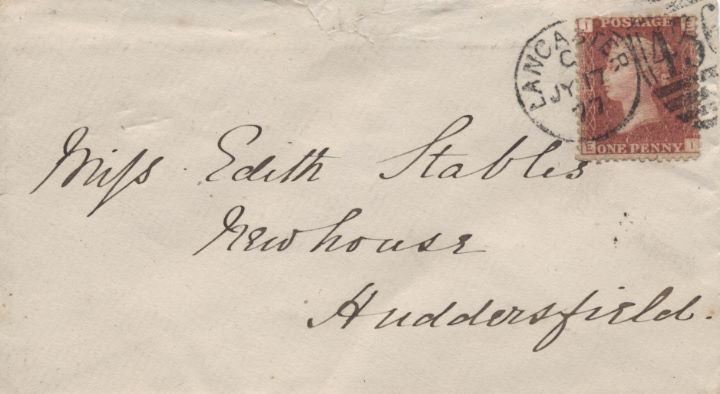 Miss Edith Stables
Newhouse
Huddersfield.
LANCASTER
C
JY 17
77
I E
POSTAGE
E I
ONE PENNY